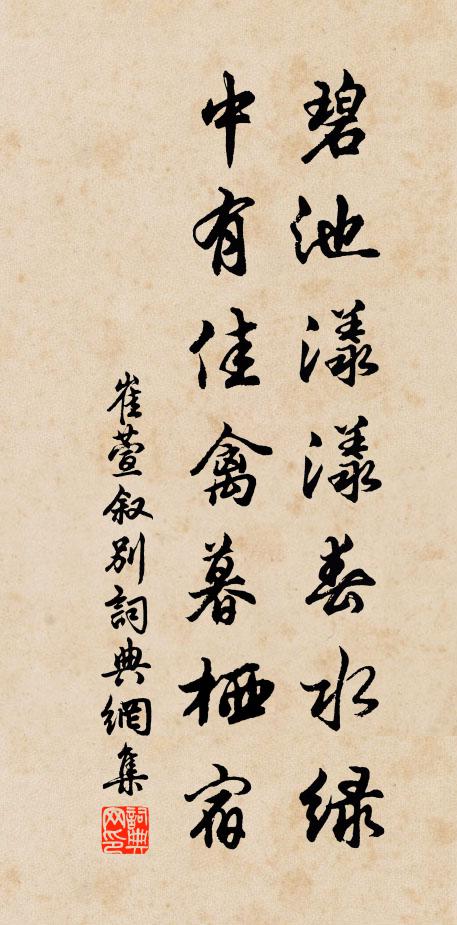 碧池漾漾春水绿
中有佳禽暮栖宿
崔萱叙别詞典網集
詞典网印